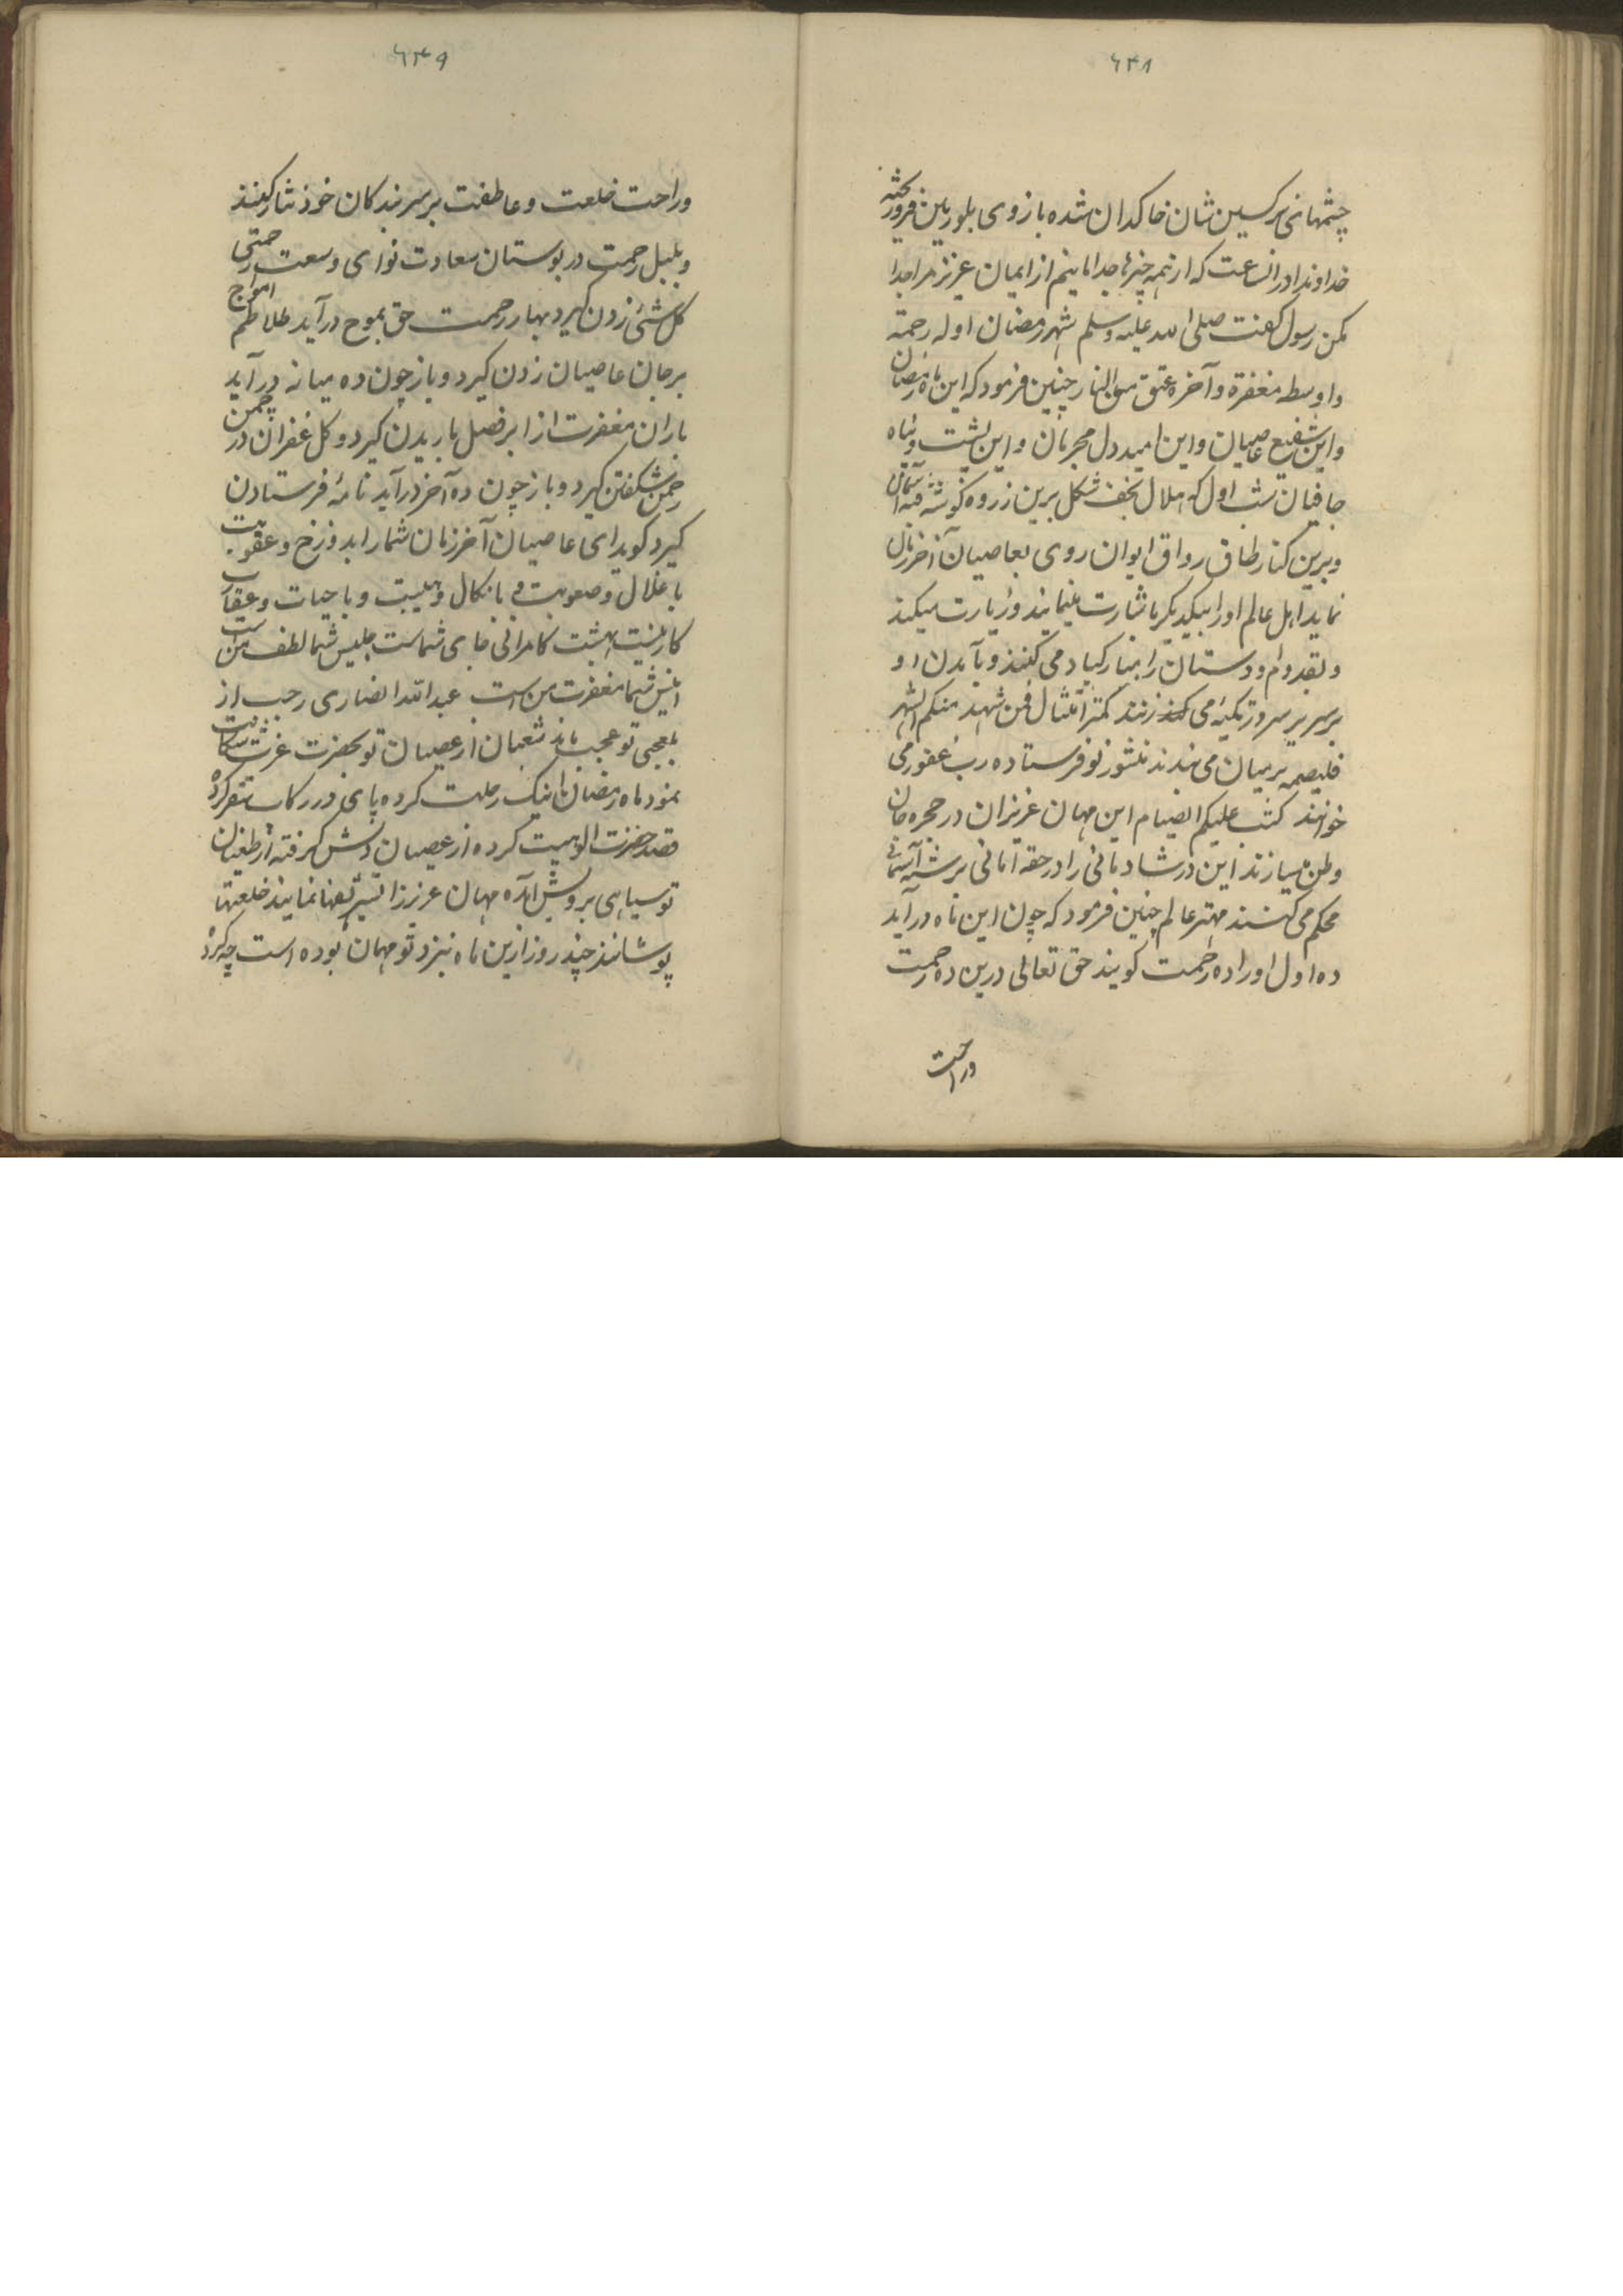 ۶۴۸
چشمهای نرکسین شان خاکدان شده بازوی بلورین فروریخته
خداوندا دران ساعت که از همه چیزها جدا مانیم از ایمان عزیز مرا جدا
مکن رسول گفت صلی الله علیه وسلم شهر رمضان اوله رحمة
واوسطه مغفرة وآخره عتق من النار چنین فرمود که این ماه رمضان
واین شفیع عاصیان واین امید دل مجرمان واین پشت وپناه
جافیان شب اول که هلال شکل برین ذروه کوشه آسمان
وبرین کنار طاق رواق ایوان روی بعاصیان آخر زمان
نماید اهل عالم اورا بیکدیکر اشارت مینمایند وزیارت میکنند
وبقدوم او دوستان را مبارکباد می کنند وبآمدن او
بر سریر سرور تکیه می زنند کمر امتثال فمن شهد منکم الشهر
فلیصمه بر میان می بندند منشور نو فرستاده رب غفور می
خوانند کتب علیکم الصیام این مهمان عزیزان در حجره جان
وطن میسازند این در شادمانی را در حقه امانی بر رشته آسمانی
محکم می کشند مهتر عالم چنین فرمود که چون این ماه درآید
ده اول اورا ده رحمت کویند حق تعالی درین ده رحمت
وراحت
۶۴۹
وراحت خلعت وعاطفت بر سر بندکان خود نثار کند
وبلبل رحمت در بوستان سعادت نوای وسعت رحمتی
کل شئ زدن کیرد بهار رحمت حق بموج درآید طلاطم امواج
بر جان عاصیان زدن کیرد وباز چون ده میانه درآید
باران مغفرت از ابر فضل باریدن کیرد وکل غفران در چمن
رحمن شکفتن کیرد وباز چون ده آخر درآید نامه فرستادن
کیرد کوید ای عاصیان آخر زمان شمارا بدوزخ وعقوبت
باغلال وصعوبت و بانکال وهیبت وباحیات وعقارب
کار نیست بهشت کامرانی جای شماست جلیس شما لطف من است
انیس شما مغفرت من است عبدالله انصاری رجب از
بلعجبی تو عجب ماند شعبان از عصیان تو بحضرت عزت شکایت
نمود ماه رمضان اینک رحلت کرده پای در رکاب سفر کرده
قصد حضرت الوهیت کرده از عصیان دلش کرفته از طغیان
تو سیاهی بروش آمده مهمان عزیز را نمایند خلعتها
پوشانند چند روز ازین ماه نزد تو مهمان بوده است چه کرد